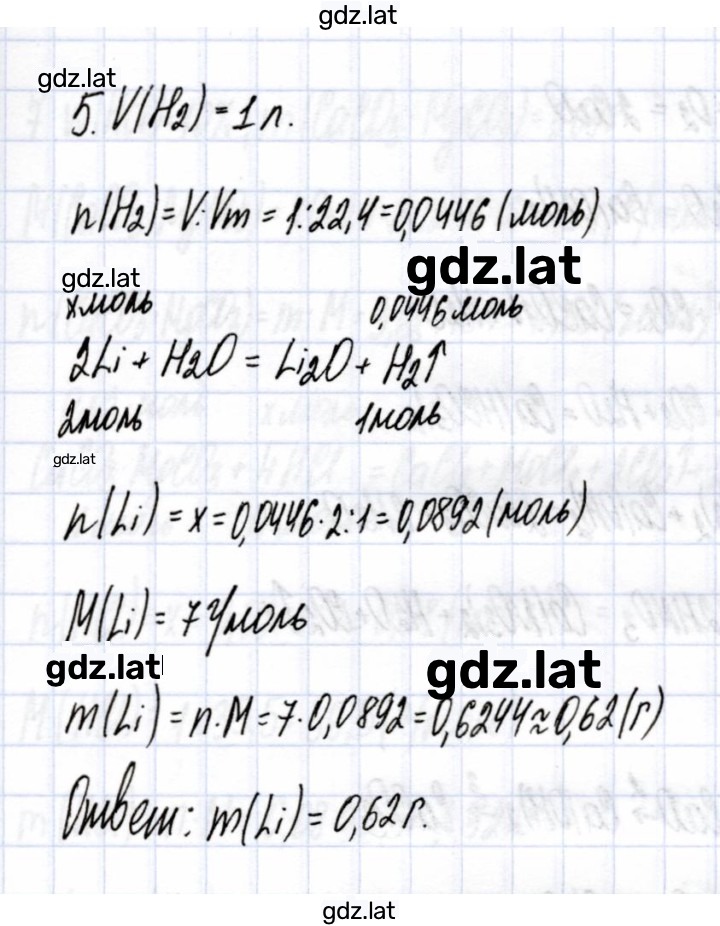 gdz.lat
gdz.lat
5. V(H₂) = 1 л.
n(H₂) = V : Vm = 1 : 22,4 = 0,0446 (моль)
gdz.lat
gdz.lat
x моль 0,0446 моль
2Li + H₂O = Li₂O + H₂↑
2 моль 1 моль
gdz.lat
n(Li) = x = 0,0446 · 2 : 1 = 0,0892 (моль)
M(Li) = 7 г/моль
gdz.lat
gdz.lat
m(Li) = n · M = 7 · 0,0892 = 0,6244 ≈ 0,62 (г)
Ответ: m(Li) = 0,62 г.
gdz.lat